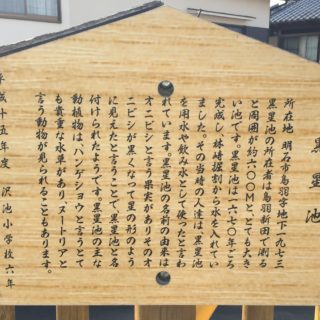 黒星池
所在地　明石市鳥羽字地下一九七三
黒星池の所在者は鳥羽新田で測る
と周囲が約六〇〇Mととても大き
い池です。黒星池は一六七〇年ごろ
完成し、林崎掘割から水を入れてい
ました。その当時の人達は、黒星池
を用水や飲み水として使ったと言わ
れています。黒星池の名前の由来は
オニビシと言う果実がありそのオ
ニビシが黒くなって星の形のよう
に見えたと言うことで、黒星池と名
付けられたようです。黒星池の主な
動植物は、ハンゲショウと言うとて
も貴重な水草があり、ヌートリアと
言う動物が見られることもあります。
平成十五年度　沢池小学校六年